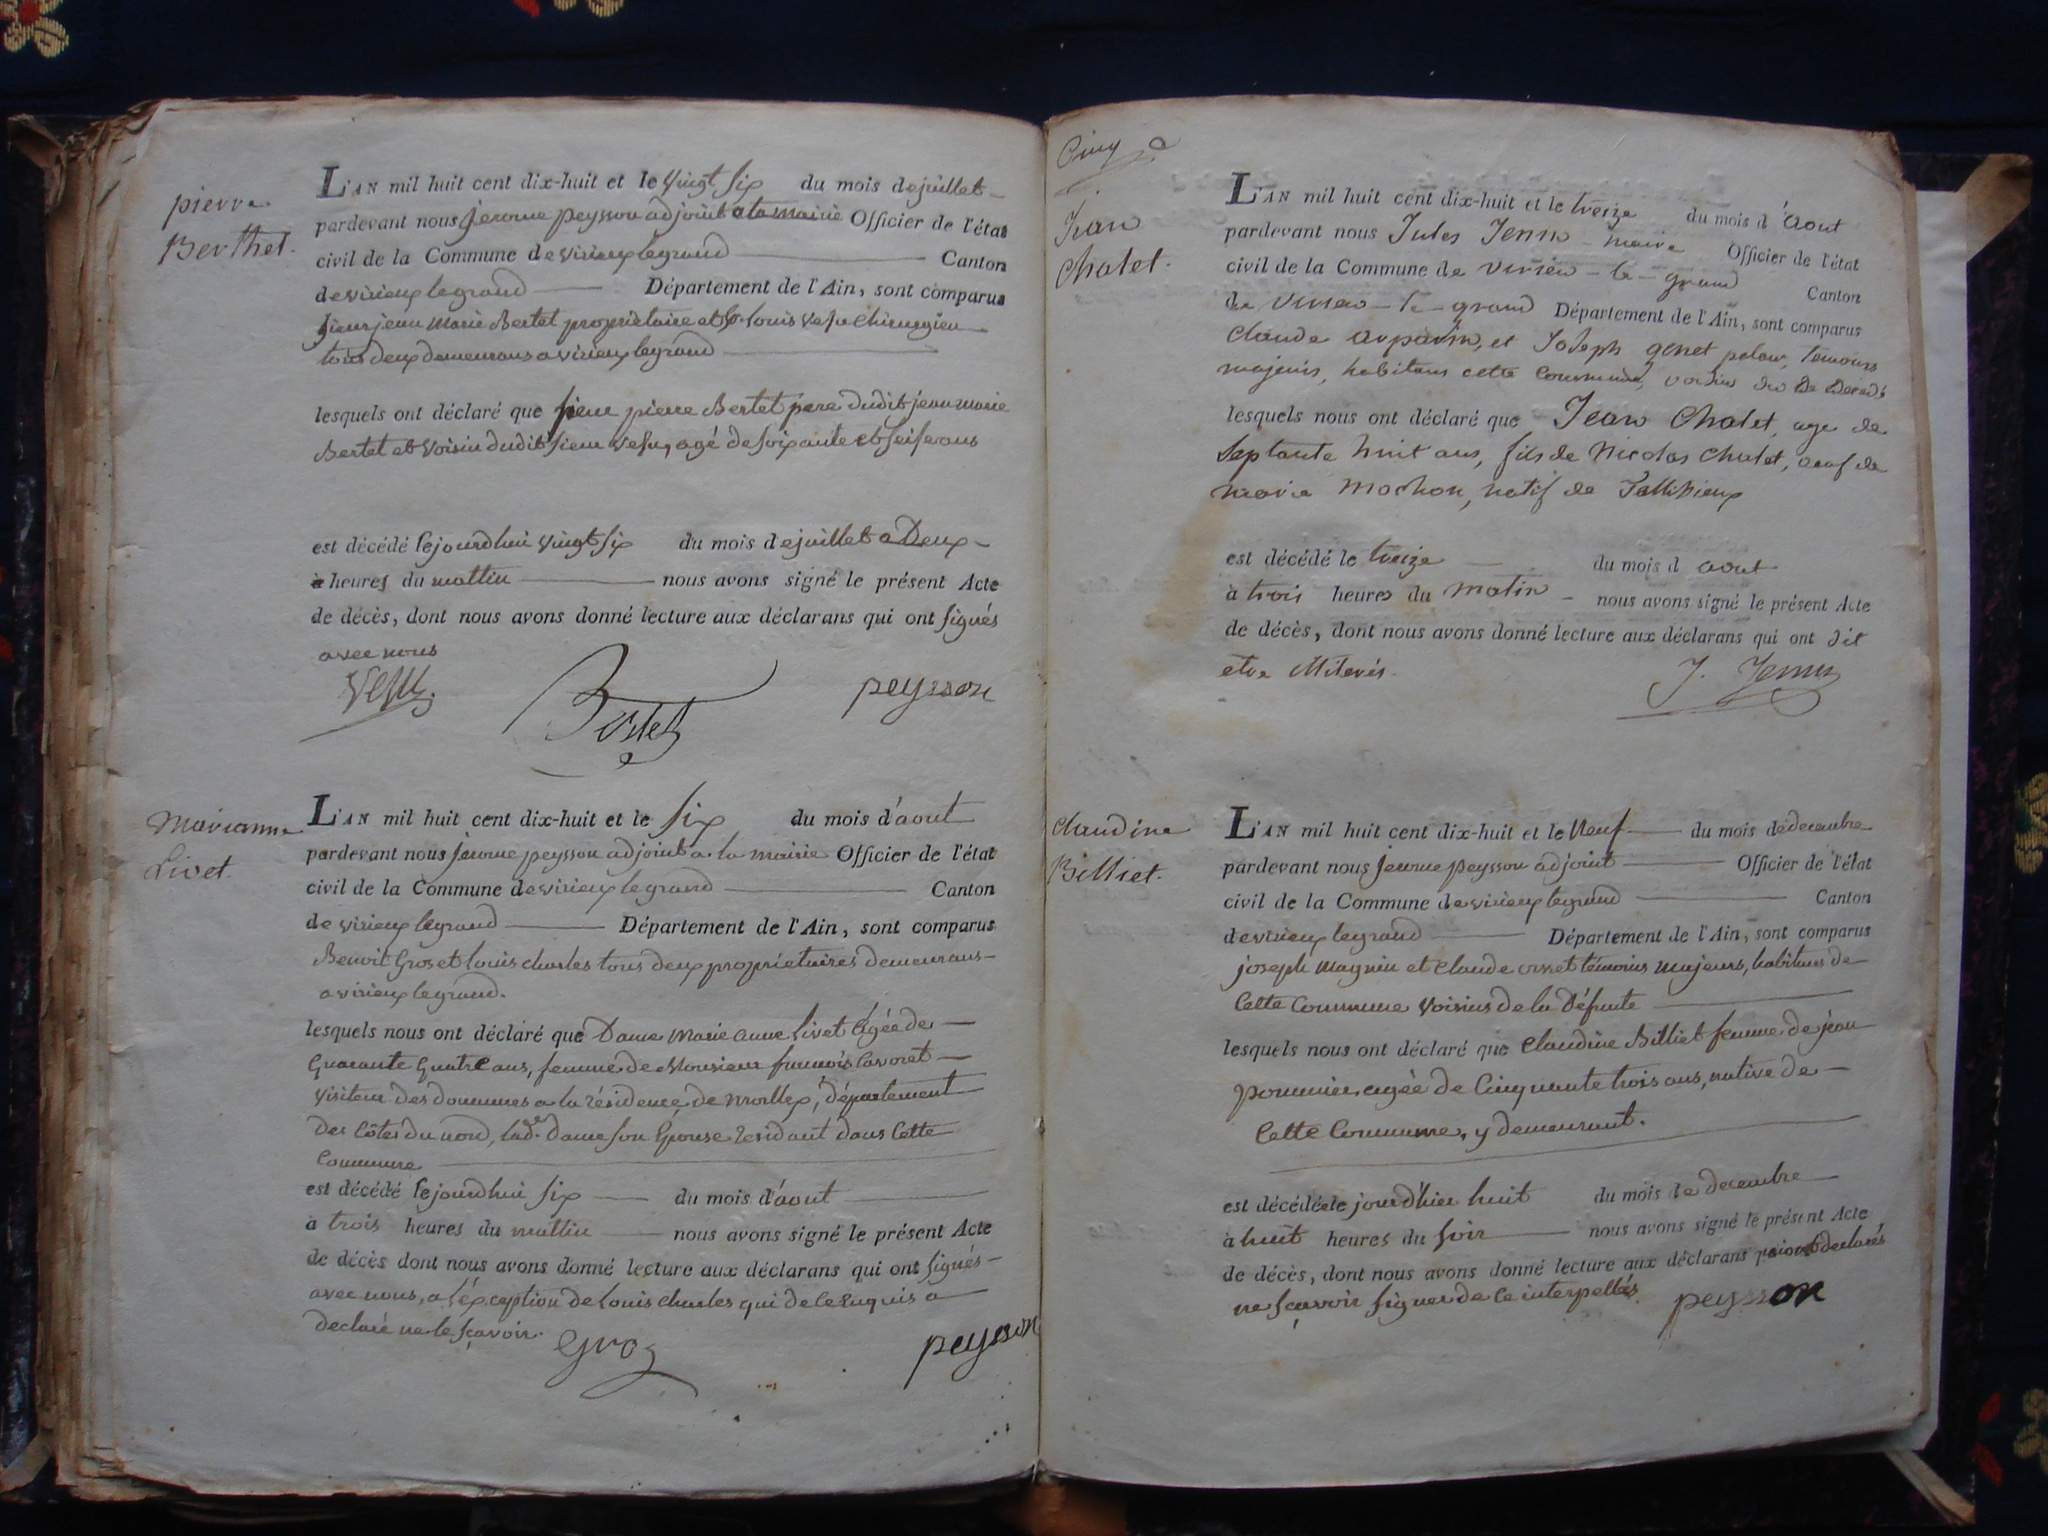 pierre
Berthet.
L'AN mil huit cent dix-huit et le vingt six du mois de juillet
pardevant nous jerome peysson adjoint a la mairie Officier de l'état
civil de la Commune de virieux legrand Canton
de virieux legrand Département de l'Ain, sont comparus
sieur jean Marie Bertet propriétaire et Sr. louis chirurgien
tous deux demeurans a virieux legrand
lesquels ont déclaré que sieur pierre Bertet pere dudit jean marie
Bertet et voisin dudit sieur agé de soixante et seise ans
est décédé cejourdhui vingt six du mois de juillet a Deux
à heures du mattin nous avons signé le présent Acte
de décès, dont nous avons donné lecture aux déclarans qui ont signés
avec nous
Bertet peysson
Marianne
Livet.
L'AN mil huit cent dix-huit et le six du mois d'aout
pardevant nous jerome peysson adjoint a la mairie Officier de l'état
civil de la Commune de virieux legrand Canton
de virieux legrand Département de l'Ain, sont comparus
Benoit Gros et louis charles tous deux proprietaires demeurans
a virieux legrand.
lesquels nous ont déclaré que Dame Marie anne livet agée de
Quarante Quatre ans, femme de Monsieur francois lavoret
visiteur des douannes a la résidence de département
Des Côtes du nord, lade. dame son Epouse residant dans Cette
Commune
est décédé cejourdhui six du mois d'aout
à trois heures du mattin nous avons signé le présent Acte
de décès dont nous avons donné lecture aux déclarans qui ont signés
avec nous, a l'éxception de louis charles qui de ce enquis a
declaré ne le sçavoir.
Groz peysson
Cinq
Jean
Chatet.
L'AN mil huit cent dix-huit et le treize du mois d'aout
pardevant nous Jules Jenin maire Officier de l'état
civil de la Commune de virieu-le-grand Canton
de virieu-le-grand Département de l'Ain, sont comparus
Claude et Joseph genet temoins
majeurs, habitans cette commune, voisins du De Decedé
lesquels nous ont déclaré que Jean Chatet, age de
Septante huit ans, fils de Nicolas Chatet, veuf de
marie Mochon, natif de
est décédé le treize du mois d aout
à trois heures du matin nous avons signé le présent Acte
de décès, dont nous avons donné lecture aux déclarans qui ont dit
etre illiterés.
J. Jenin
Claudine
Billiet.
L'AN mil huit cent dix-huit et le Neuf du mois de decembre
pardevant nous jerome peysson adjoint Officier de l'état
civil de la Commune de virieux legrand Canton
de virieux legrand Département de l'Ain, sont comparus
joseph Magnin et Claude témoins majeurs, habitans de
Cette Commune voisins de la Défunte
lesquels nous ont déclaré que Claudine Billiet femme de jean
pommier agée de Cinquante trois ans, native de
Cette Commune, y demeurant.
est décédée le jour d'hier huit du mois de decembre
à huit heures du soir nous avons signé le présent Acte
de décès, dont nous avons donné lecture aux déclarans qui ont declarés
ne sçavoir signer de ce interpellés. peysson